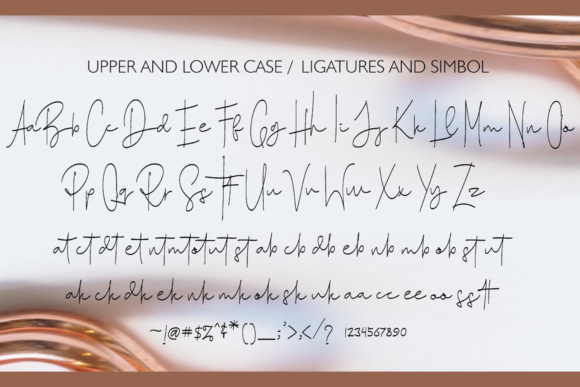 UPPER AND LOWER CASE / LIGATURES AND SIMBOL
Aa Bb Cc Dd Ee Ff Gg Hh Ii Jj Kk Ll Mm Nn Oo
Pp Qq Rr Ss Tt Uu Vv Ww Xx Yy Zz
at ct dt et nt mt ot ut st ab cb db eb nb mb ob st ut
ak ck dk ek nk mk ok sk uk aa cc ee oo ss tt
~!@#$%^&*()_:;'>,</? 1234567890